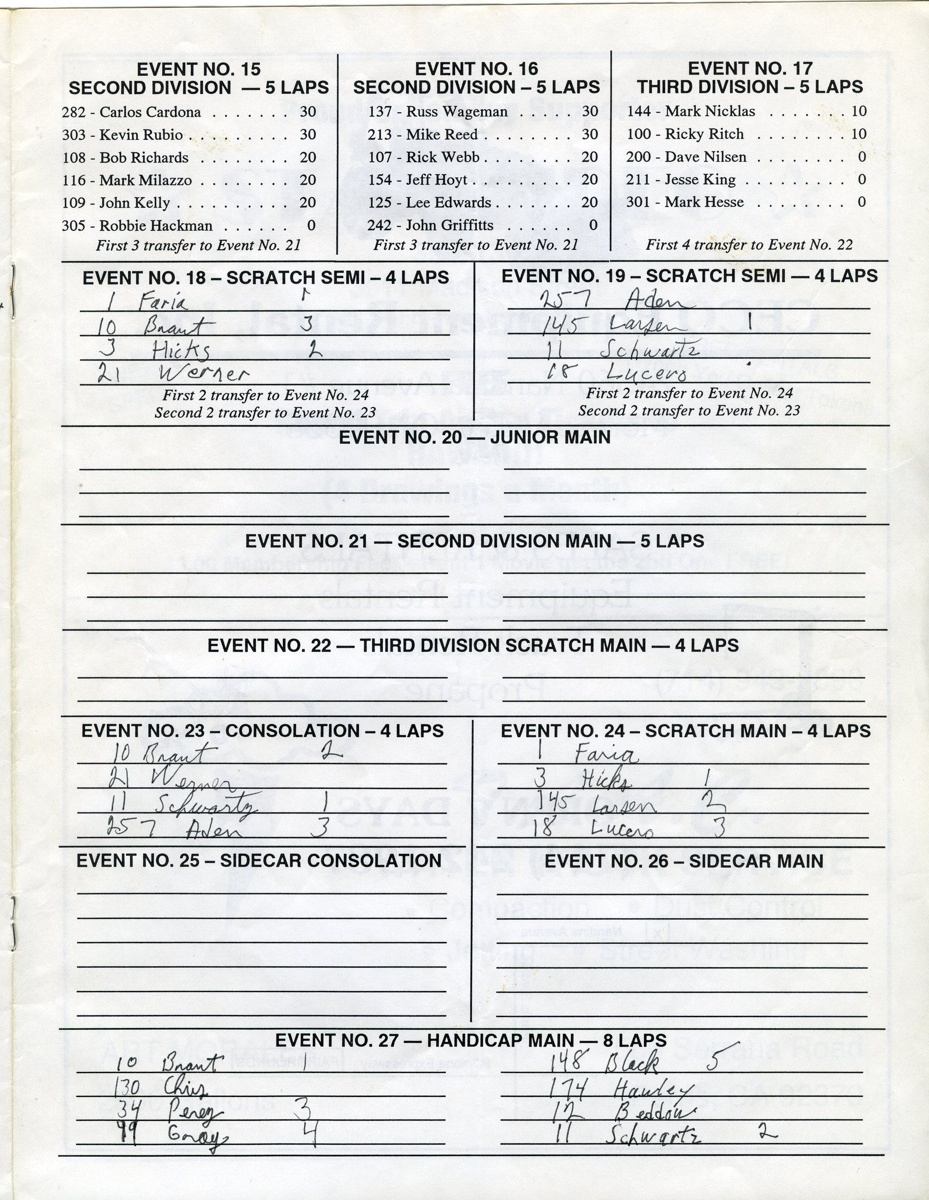 EVENT NO. 15
SECOND DIVISION — 5 LAPS
282 - Carlos Cardona . . . . . . . .
303 - Kevin Rubio . . . . . . . . . 30
108 - Bob Richards . . . . . . . . 20
116 - Mark Milazzo . . . . . . . . 20
109 - John Kelly . . . . . . . . . . 20
305 - Robbie Hackman . . . . . . 0
First 3 transfer to Event No. 21
EVENT NO. 16
SECOND DIVISION – 5 LAPS
137 - Russ Wageman . . . . . . . 30
213 - Mike Reed . . . . . . . . . . 30
107 - Rick Webb . . . . . . . . . . 20
154 - Jeff Hoyt . . . . . . . . . . . 20
125 - Lee Edwards . . . . . . . . . 20
242 - John Griffitts . . . . . . . . 0
First 3 transfer to Event No. 21
EVENT NO. 17
THIRD DIVISION – 5 LAPS
144 - Mark Nicklas . . . . . . . . 10
100 - Ricky Ritch . . . . . . . . . 10
200 - Dave Nilsen . . . . . . . . 0
211 - Jesse King . . . . . . . . . 0
301 - Mark Hesse . . . . . . . . 0
First 4 transfer to Event No. 22
EVENT NO. 18 – SCRATCH SEMI – 4 LAPS
1 Faria 1
10 Brant 3
3 Hicks 2
21 Werner
First 2 transfer to Event No. 24
Second 2 transfer to Event No. 23
EVENT NO. 19 – SCRATCH SEMI — 4 LAPS
257 Aden
145 Larsen 1
11 Schwartz
18 Lucero
First 2 transfer to Event No. 24
Second 2 transfer to Event No. 23
EVENT NO. 20 — JUNIOR MAIN
EVENT NO. 21 — SECOND DIVISION MAIN — 5 LAPS
EVENT NO. 22 — THIRD DIVISION SCRATCH MAIN — 4 LAPS
EVENT NO. 23 – CONSOLATION – 4 LAPS
10 Brant 2
21 Werner
11 Schwartz 1
257 Aden 3
EVENT NO. 24 – SCRATCH MAIN – 4 LAPS
1 Faria
3 Hicks 1
145 Larsen 2
18 Lucero 3
EVENT NO. 25 – SIDECAR CONSOLATION
EVENT NO. 26 – SIDECAR MAIN
EVENT NO. 27 – HANDICAP MAIN – 8 LAPS
10 Brant 1
130 Chris
34 Perez 3
99 Grays 4
148 Black 5
174 Hawley
12 Beddow
11 Schwartz 2